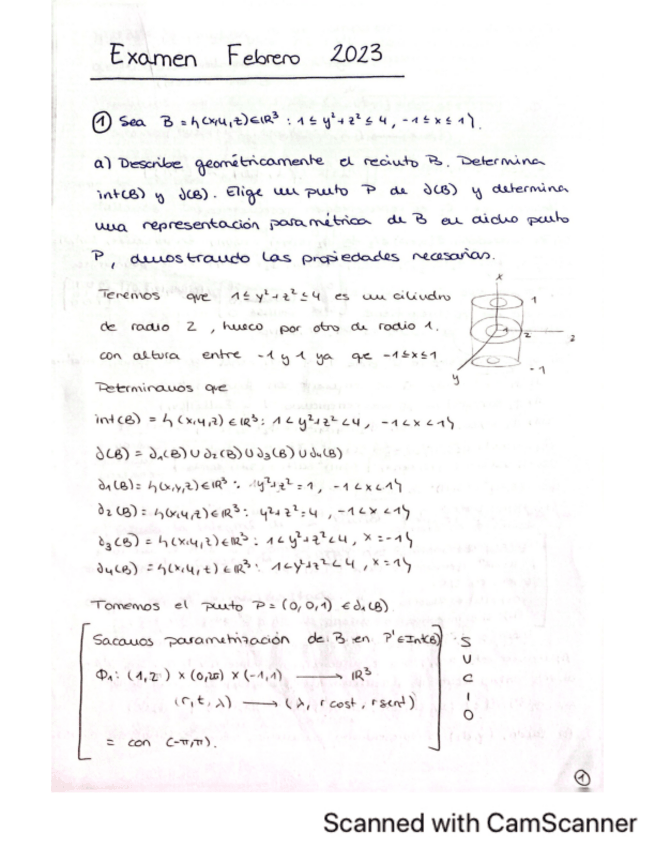 Examen Febrero 2023
① Sea B = {(x,y,z)∈ℝ³ : 1 ≤ y²+z² ≤ 4, -1 ≤ x ≤ 1}.
a) Describe geométricamente el recinto B. Determina
int(B) y ∂(B). Elige un punto P de ∂(B) y determina
una representación paramétrica de B en dicho punto
P, demostrando las propiedades necesarias.
Tenemos que 1 ≤ y²+z² ≤ 4 es un cilindro
de radio 2, hueco por otro de radio 1.
con altura entre -1 y 1 ya que -1≤x≤1
x
1
1
2
z
-1
y
Determinamos que
int(B) = {(x,y,z)∈ℝ³: 1 < y²+z² < 4, -1 < x < 1}
∂(B) = ∂₁(B) ∪ ∂₂(B) ∪ ∂₃(B) ∪ ∂₄(B)
∂₁(B) = {(x,y,z)∈ℝ³ : y²+z² = 1, -1 < x < 1}
∂₂(B) = {(x,y,z)∈ℝ³: y²+z²=4, -1 < x < 1}
∂₃(B) = {(x,y,z)∈ℝ³: 1 < y²+z² < 4, x = -1}
∂₄(B) = {(x,y,z)∈ℝ³: 1 < y²+z² < 4, x = 1}
Tomemos el punto P = (0,0,1) ∈ ∂₁(B)
Sacamos parametrización de B en P'∈Int(B)
Φ₁: (1,2) × (0,2π) × (-1,1) ⟶ ℝ³
(r, t, λ) ⟶ (λ, r cost, r sent)
= con (-π,π).
S
U
C
I
O
①
Scanned with CamScanner